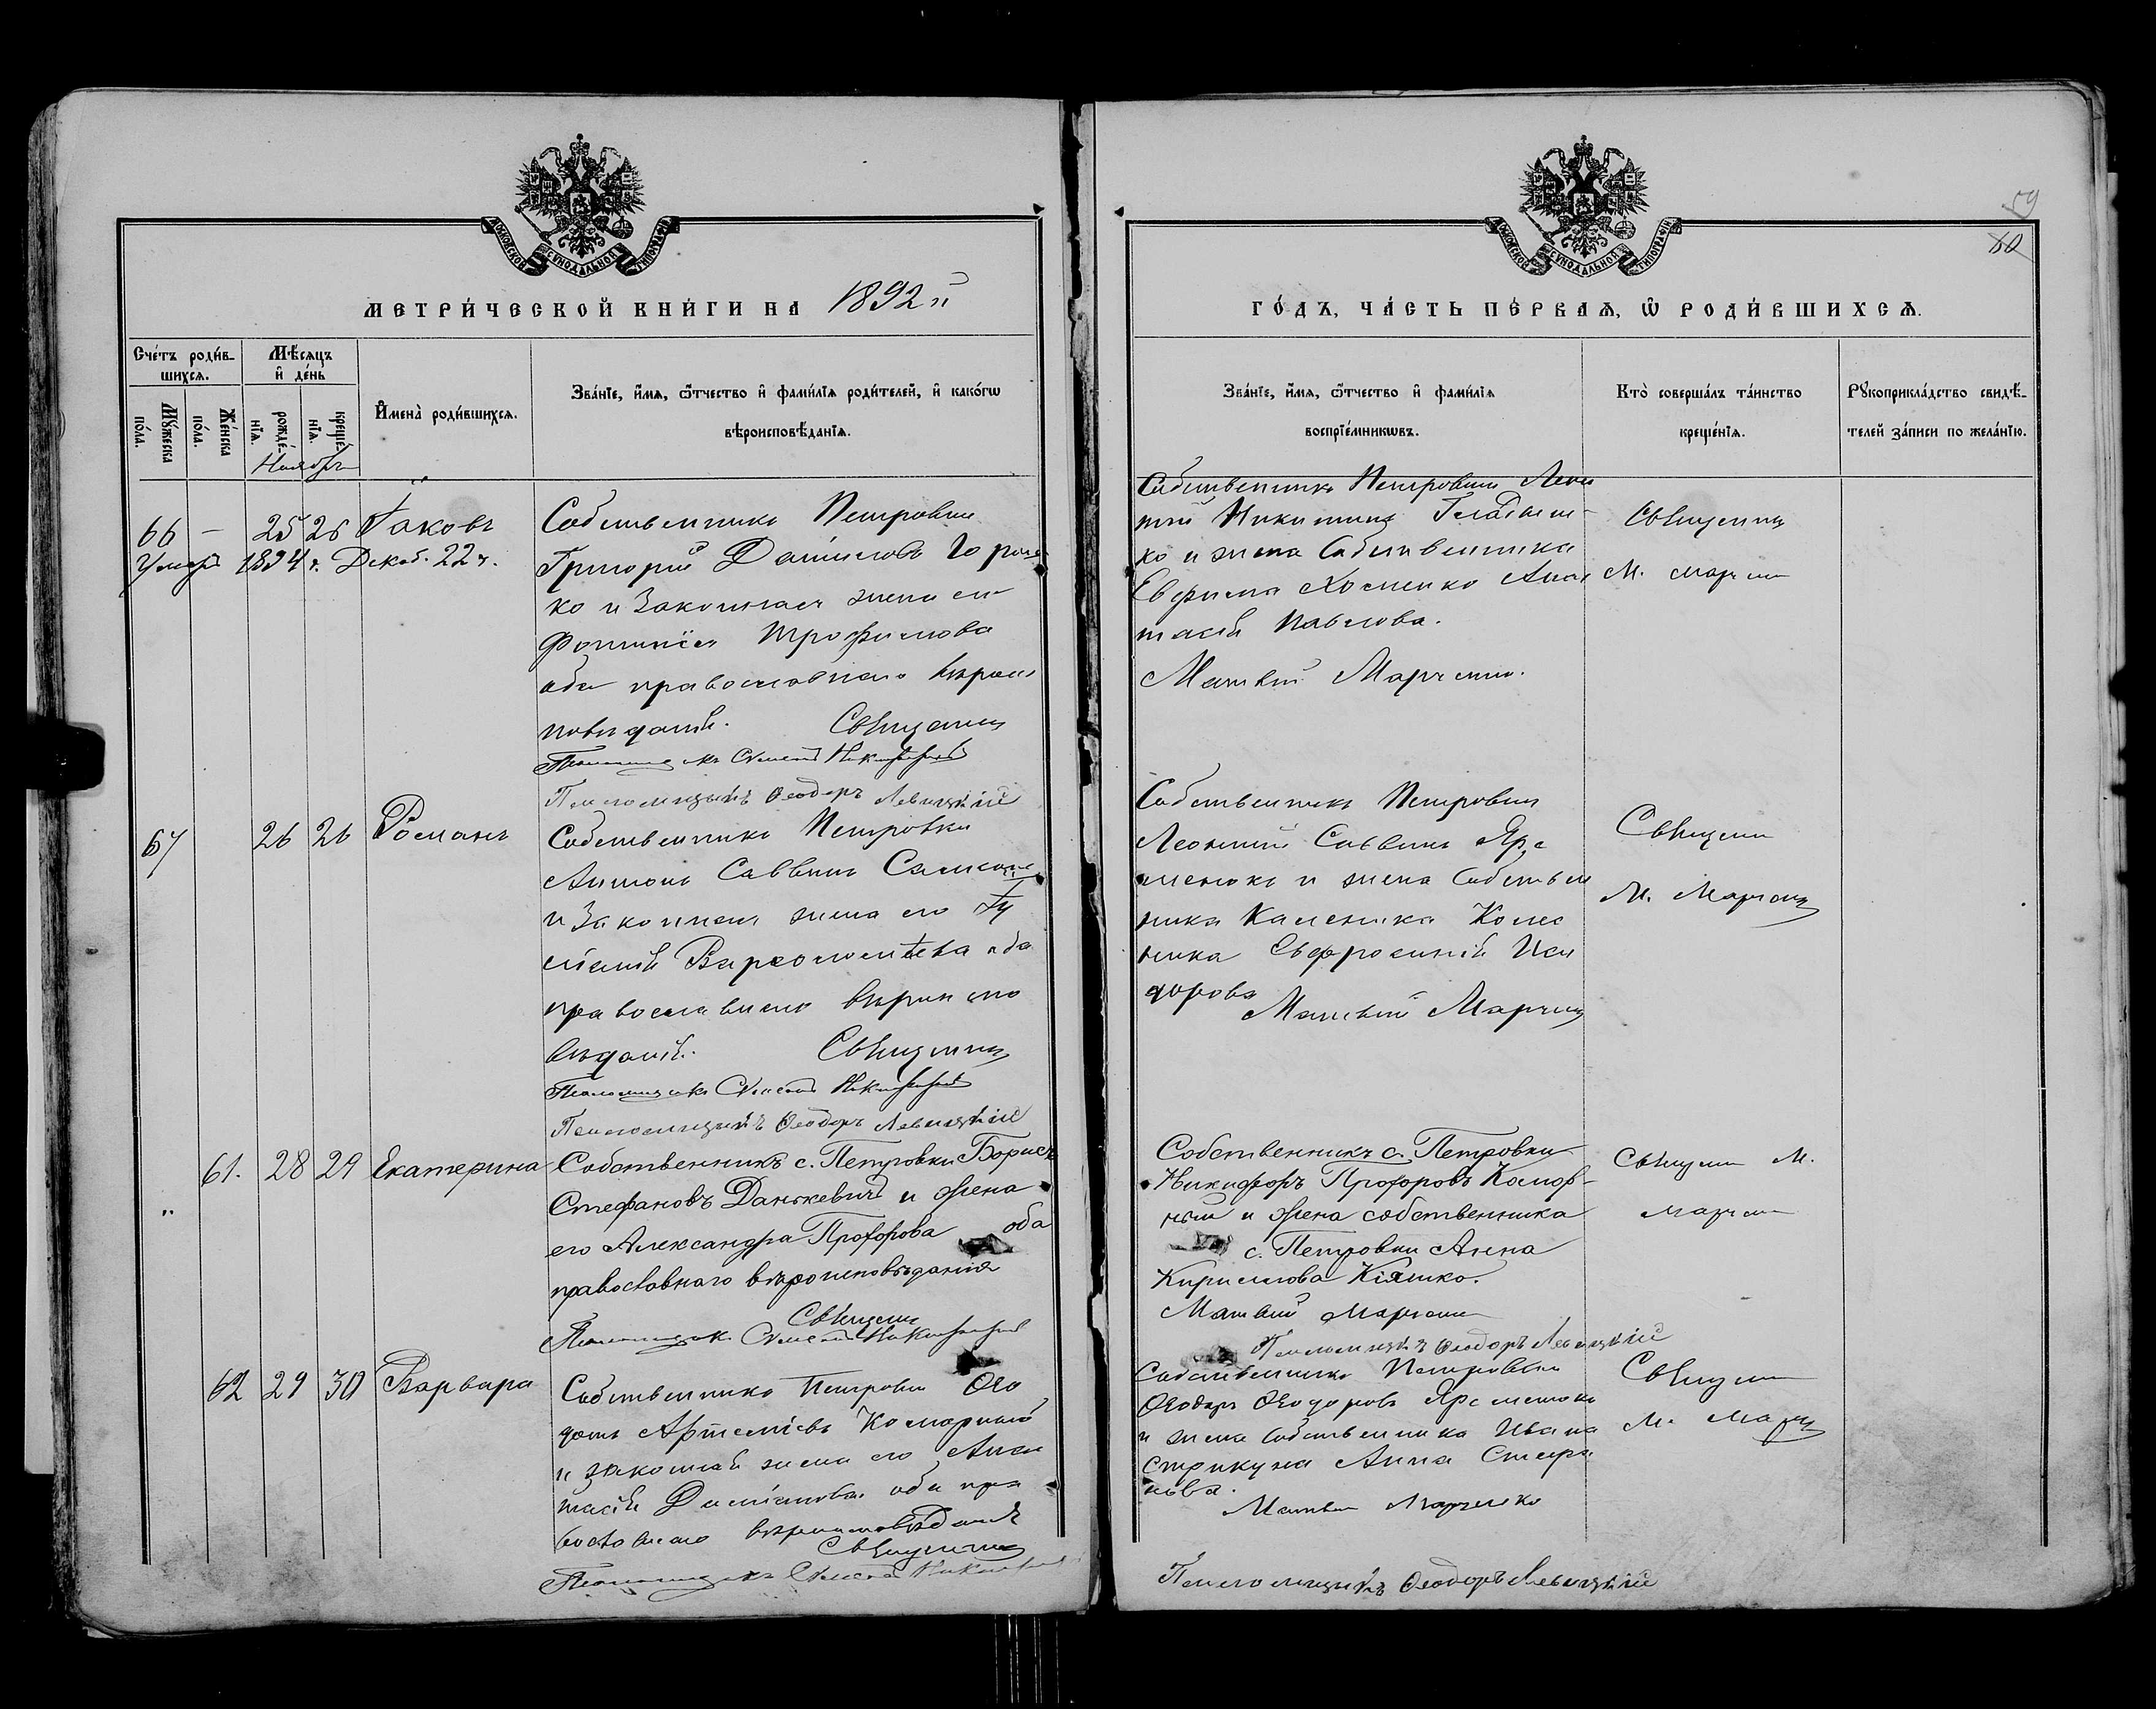 МОСКОВСКОЙ СѴНОДАЛЬНОЙ ТИПОГРАФІИ
МЕТРИ́ЧЕСКОЙ КНИ́ГИ НА 1892 й
Сче́тъ роди́в-
шихсѧ.
Мѣ́сѧцъ
и҆ де́нь
Мꙋ́жеска
по́ла.
Же́нска
по́ла.
рожде́-
нїѧ.
креще́-
нїѧ.
И҆мена̀ роди́вшихсѧ.
Зва́нїе, и҆́мѧ, ѻ҆́тчество и҆ фами́лїѧ роди́телей, и҆ како́гѡ
вѣроисповѣ́данїѧ.
Ноябрь
66 - 25 26 Іаковъ
Умеръ 1894 г. Декаб. 22 ч.
Собственникъ Петровки
Григорій Даніиловъ
ко и законная жена его
Фотинія Трофимова
оба православнаго вѣроис
повѣданія. Священникъ
Псаломщикъ
Псаломщикъ Ѳеодоръ Левицкій
67 26 26 Романъ
Собственникъ Петровки
Антонъ Саввинъ
и законная жена его Іу
ліанія Варѳоломѣева оба
православнаго вѣроиспо
вѣданія. Священникъ
Псаломщикъ
Псаломщикъ Ѳеодоръ Левицкій
61. 28 29 Екатерина
Собственникъ с. Петровки Борисъ
Стефановъ Данькевичъ и жена
его Александра Прохорова оба
православнаго вѣроисповѣданія
Священ
Псаломщикъ
62 29 30 Варвара
Собственникъ Петровки Ѳео
дотъ Артеміевъ Комарный
и законная жена его Анас
тасія Даміанова оба пра
вославнаго вѣроисповѣданія
Священник
Псаломщикъ
МОСКОВСКОЙ СѴНОДАЛЬНОЙ ТИПОГРАФІИ
59
60
ГО́ДЪ, ЧА́СТЬ ПЕ́РВАѦ, Ѡ҆ РОДИ́ВШИХСѦ.
Зва́нїе, и҆́мѧ, ѻ҆́тчество и҆ фами́лїѧ
воспрїе́мникѡвъ.
Кто̀ соверша́лъ та́инство
креще́нїѧ.
Рꙋкоприкла́дство свидѣ́-
телей за́писи по жела́нїю.
Собственникъ Петровки Леон
тій Никитинъ
ко и жена собственника
Евфима Хоменко Анас
тасія Павлова.
Матвій Марченко.
Священник
М. Марченко
Собственникъ Петровки
Леонтій Саввинъ Яре
менко и жена собствен
ника Каленика Колес
ника Евфросинія Иси
дорова
Матвій Марченко
Священ
М. Марченко
Собственникъ с. Петровки
Никифоръ Прохоровъ Комар-
ный и жена собственника
с. Петровки Анна
Кириллова Кіяшко.
Матвій Марченко
Псаломщикъ Ѳеодоръ Левицкій
Священ М.
Марченко
Собственникъ Петровки
Ѳеодоръ Ѳеодоровъ Яременко
и жена собственника Ивана
Стрикуна Анна Стефа
нова.
Матвій Марченко
Священ
М. Марч
Псаломщикъ Ѳеодоръ Левицкій